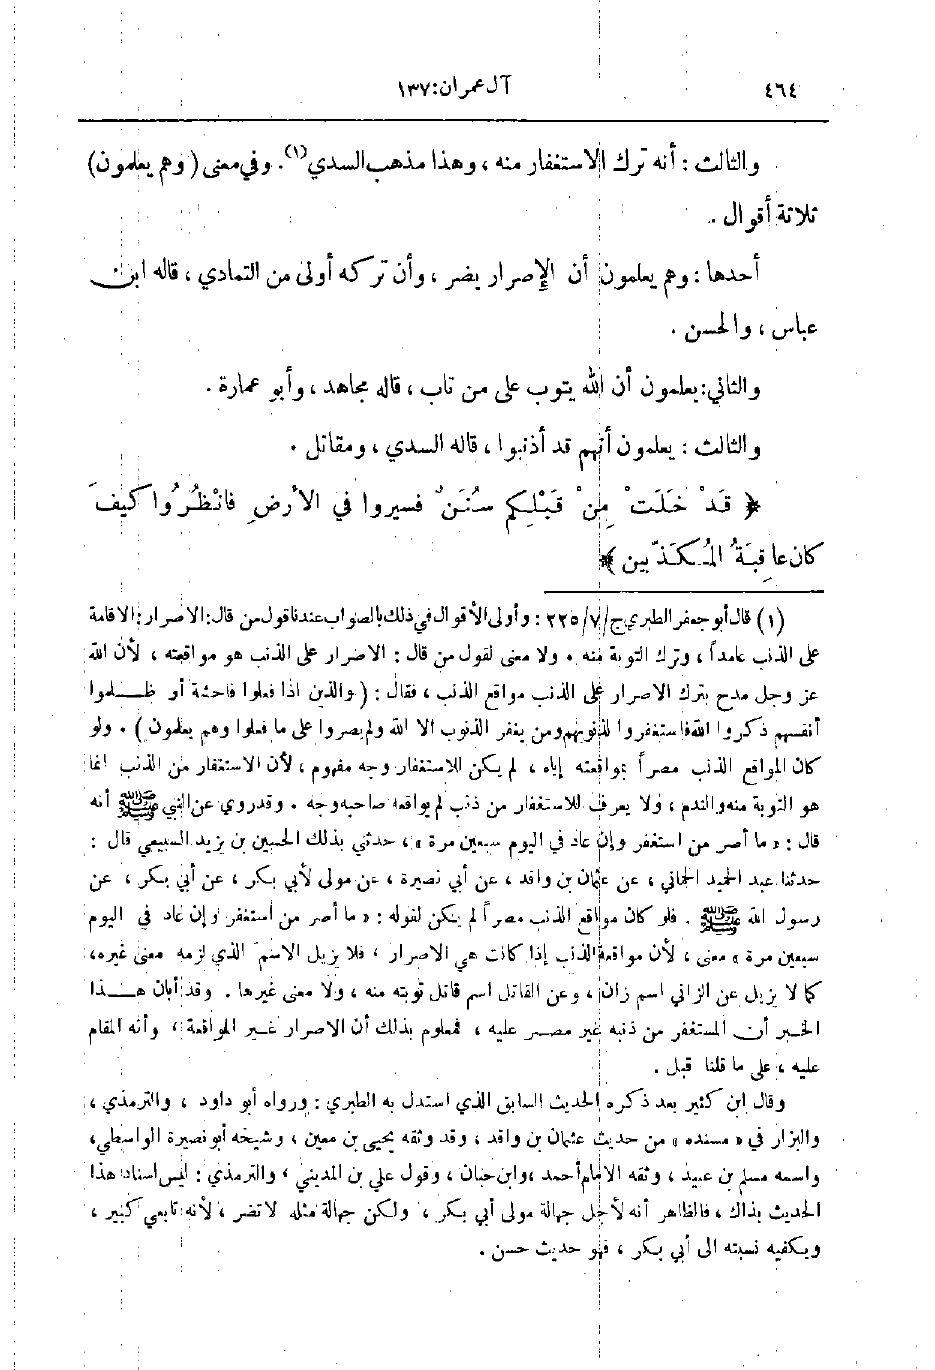 ٤٦٤
آل عمران: ١٣٧
والثالث : أنه ترك الاستغفار منه ، وهذا مذهب السدي(١). وفي معنى ( وهم يعلمون)
ثلاثة أقوال .
أحدها : وهم يعلمون أن الإصرار يضر ، وأن تركه أولى من التمادي ، قاله ابن
عباس ، والحسن .
والثاني: يعلمون أن الله يتوب على من تاب ، قاله مجاهد ، وأبو عمارة .
والثالث : يعلمون أنهم قد أذنبوا ، قاله السدي ، ومقاتل .
﴿ قَدْ خَلَتْ مِنْ قَبْلِكم سُنَنٌ فسيروا في الأرضِ فانْظُرُوا كَيفَ
كان عاقِبَةُ المُكَذّبين ﴾
(١) قال أبو جعفر الطبري ج/٧/ ٢٢٥ : وأولى الأقوال في ذلك بالصواب عندنا قول من قال: الاصرار: الاقامة
على الذنب عامداً ، وترك التوبة منه . ولا معنى لقول من قال : الاصرار على الذنب هو مواقعته ، لأن الله
عز وجل مدح بترك الاصرار على الذنب مواقع الذنب ، فقال : ( والذين اذا فعلوا فاحشة أو ظلموا
أنفسهم ذكروا الله فاستغفروا لذنوبهم ومن يغفر الذنوب الا الله ولم يصروا على ما فعلوا وهم يعلمون ) . ولو
كان المواقع الذنب مصراً بمواقعته إياه ، لم يكن للاستغفار وجه مفهوم ، لأن الاستغفار من الذنب انما
هو التوبة منه والندم ، ولا يعرف للاستغفار من ذنب لم يواقعه صاحبه وجه . وقد روي عن النبي ﷺ أنه
قال : « ما أصر من استغفر وإن عاد في اليوم سبعين مرة » ، حدثني بذلك الحسين بن يزيد السبيعي قال :
حدثنا عبد الحميد الحماني ، عن عثمان بن واقد ، عن أبي نصيرة ، عن مولى لأبي بكر ، عن أبي بكر ، عن
رسول الله ﷺ . فلو كان مواقع الذنب مصراً لم يكن لقوله : « ما أصر من استغفر وإن عاد في اليوم
سبعين مرة » معنى ، لأن مواقعة الذنب إذا كانت هي الاصرار ، فلا يزيل الاسم الذي لزمه معنى غيره،
كما لا يزيل عن الزاني اسم زان ، وعن القاتل اسم قاتل توبته منه ، ولا معنى غيرها . وقد أبان هذا
الخبر أن المستغفر من ذنبه غير مصر عليه ، فمعلوم بذلك أن الاصرار غير المواقعة ، وأنه المقام
عليه ، على ما قلنا قبل .
وقال ابن كثير بعد ذكره الحديث السابق الذي استدل به الطبري : ورواه أبو داود ، والترمذي ،
والبزار في « مسنده » من حديث عثمان بن واقد ، وقد وثقه يحيى بن معين ، وشيخه أبو نصيرة الواسطي،
واسمه مسلم بن عبيد ، وثقه الامام أحمد ،وابن حبان ، وقول علي بن المديني ، والترمذي : ليس اسناد هذا
الحديث بذاك ، فالظاهر أنه لأجل جهالة مولى أبي بكر ، ولكن جهالة مثله لا تضر ، لأنه تابعي كبير ،
ويكفيه نسبته الى أبي بكر ، فهو حديث حسن .